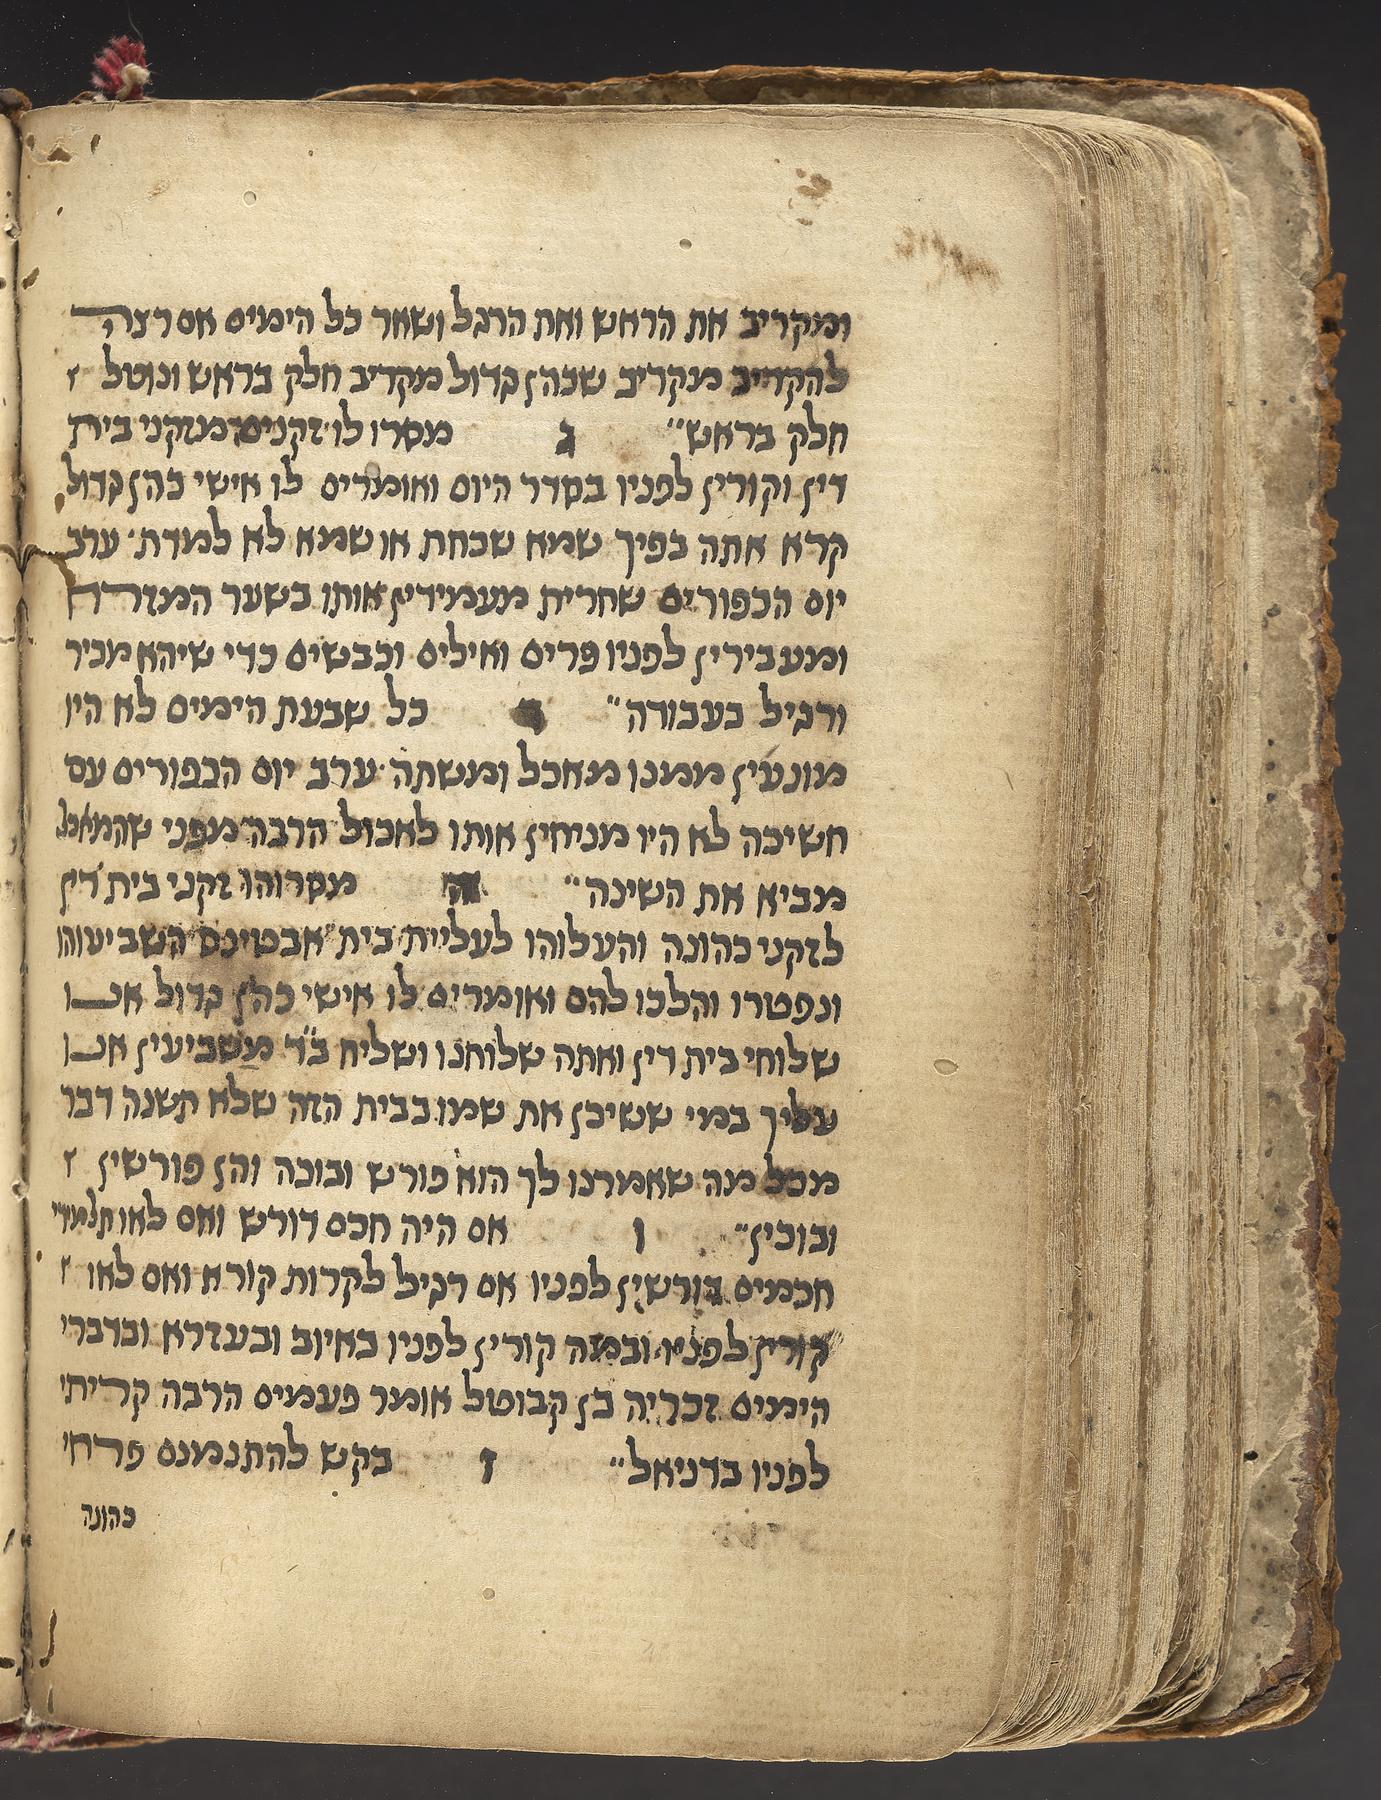 ומקריב את הראש ואת הרגל ושאר כל הימים אם רצה
להקריב מקריב שכהן גדול מקריב חלק בראש ונוטל
חלק בראש״ ג מסרו לו זקנים מזקני בית
דין וקורין לפניו בסדר היום ואומרים לו אישי כהן גדול
קרא אתה בפיך שמא שכחת או שמא לא למדת׳ ערב
יום הכפורים שחרית מעמידין אותו בשער המזרח
ומעבירין לפניו פרים ואילים וכבשים כדי שיהא מכיר
ורגיל בעבודה״ ד כל שבעת הימים לא היו
מונעין ממנו מאכל ומשתה׳ ערב יום הכפורים עם
חשיכה לא היו מניחין אותו לאכול הרבה מפני שהמאכל
מביא את השינה״ ה מסרוהו זקני בית דין
לזקני כהונה והעלוהו לעליית בית אבטינס השביעוהו
ונפטרו והלכו להם ואומרים לו אישי כהן גדול אנו
שלוחי בית דין ואתה שלוחנו ושליח ב״ד משביעין אנו
עליך במי ששיכן את שמו בבית הזה שלא תשנה דבר
מכל מה שאמרנו לך הוא פורש ובוכה והן פורשין
ובוכין״ ו אם היה חכם דורש ואם לאו תלמידי
חכמים דורשין לפניו אם רגיל לקרות קורא ואם לאו
קורין לפניו ובמה קורין לפניו באיוב ובעזרא ובדברי
הימים זכריה בן קבוטל אומר פעמים הרבה קריתי
לפניו בדניאל״ ז בקש להתנמנם פרחי
כהונה